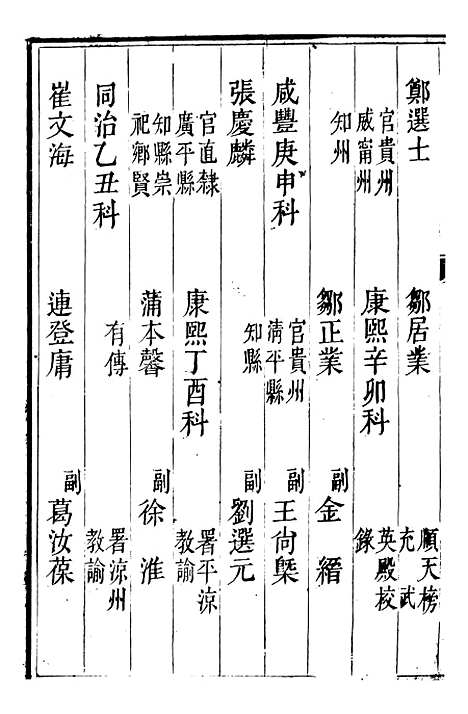 鄭選士
官貴州
威甯州
知州
咸豐庚申科
張慶麟
官直隸
廣平縣
知縣崇
祀鄉賢
同治乙丑科
崔文海
鄒居業
康熙辛卯科
鄒正業
官貴州
清平縣
知縣
康熙丁酉科
蒲本馨
有傳
連登庸
順天榜
充武
英殿校
錄
副金縉
副王尙槩
副劉選元
署平涼
教諭
副徐淮
署涼州
教諭
副葛汝葆